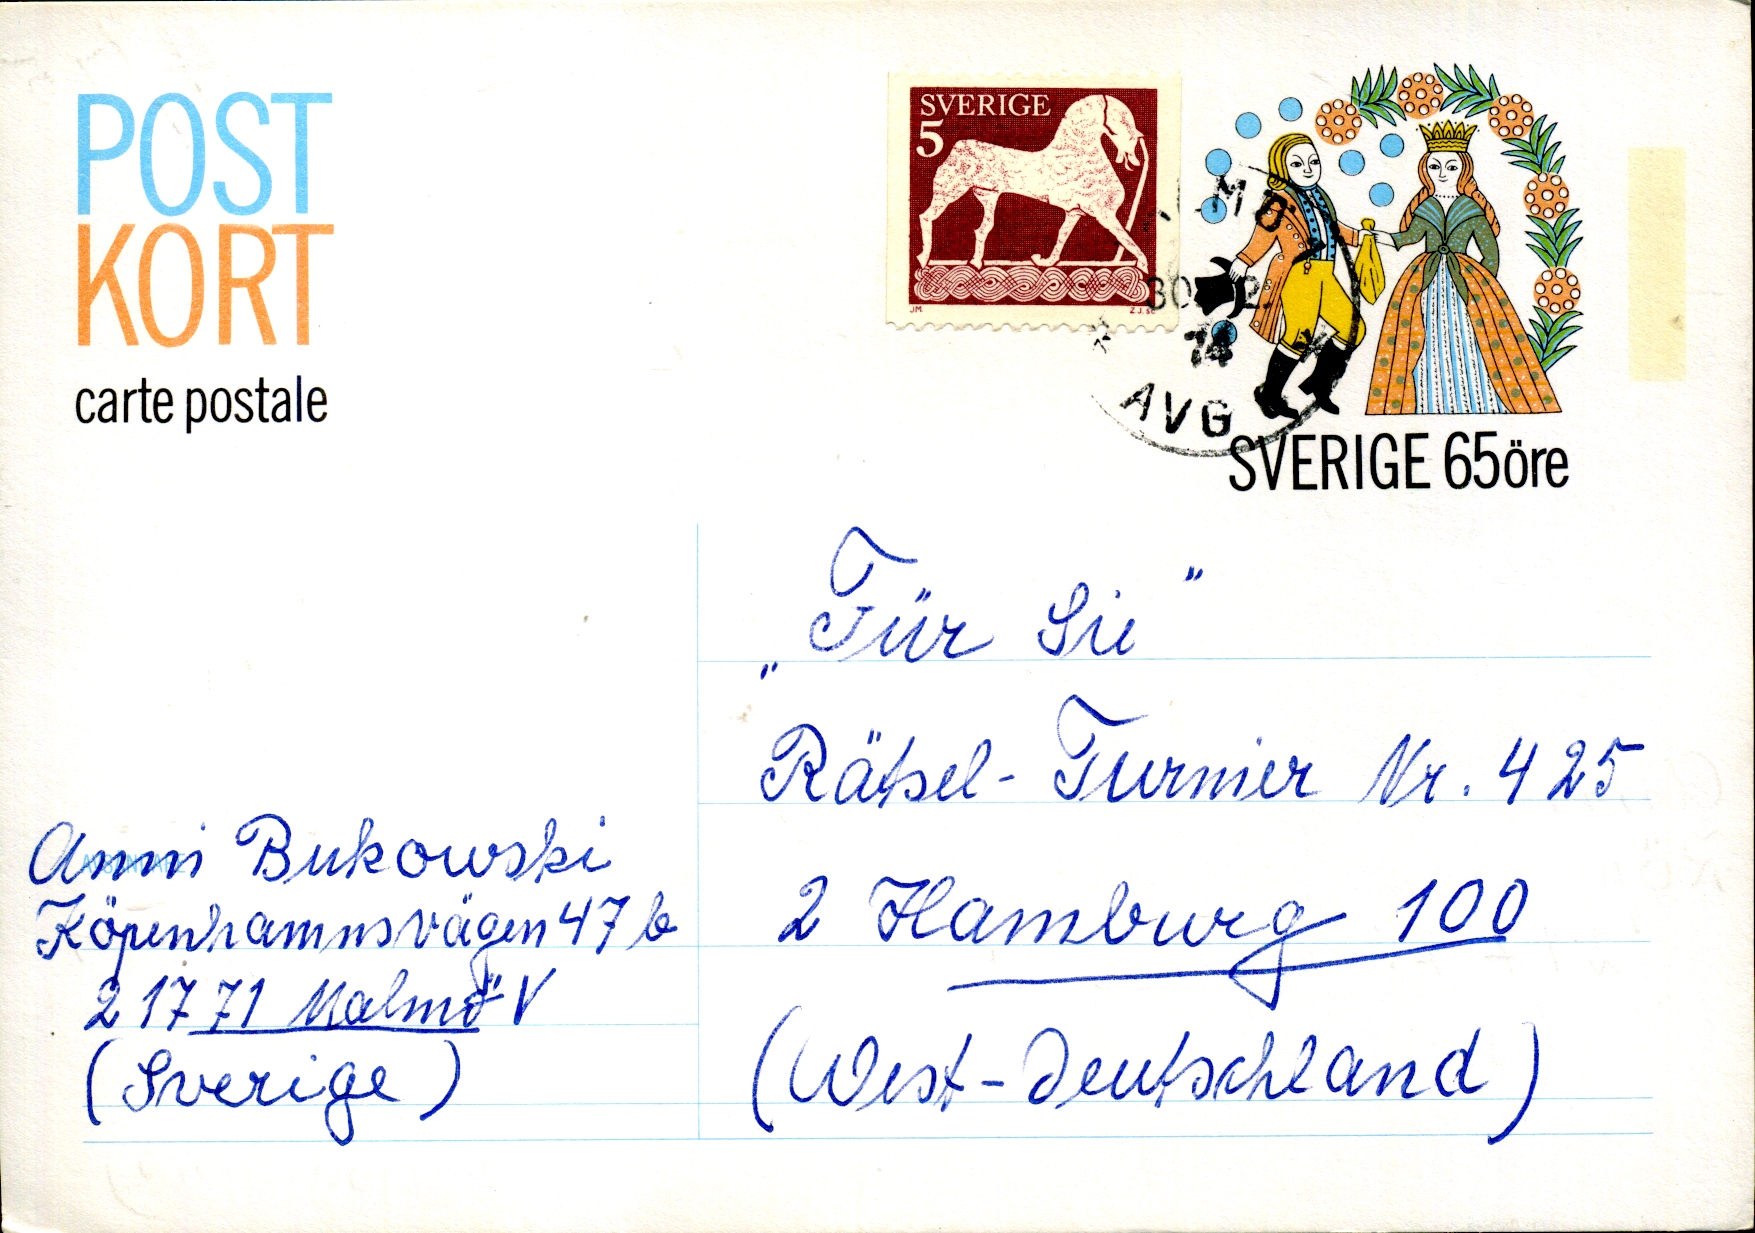 POST
KORT
carte postale
SVERIGE
5
JM.
Z.J.sc
30 12
74
AVG
SVERIGE 65öre
„Für Sie"
Rätsel-Turnier Nr. 425
2 Hamburg 100
(West-Deutschland)
Anni Bukowski
Köpenhamnsvägen 47 b
21771 Malmö V
(Sverige)